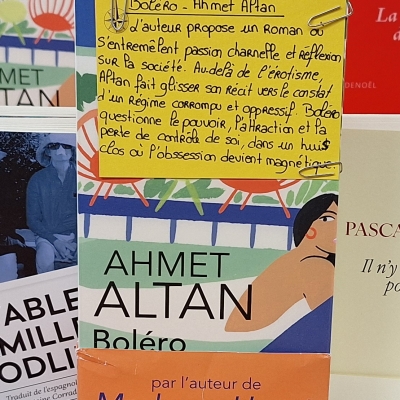 Boléro - Ahmet Altan
L'auteur propose un roman où
s'entremêlent passion charnelle et réflexion
sur la société. Au-delà de l'érotisme,
Altan fait glisser son récit vers le constat
d'un régime corrompu et oppressif. Boléro
questionne le pouvoir, l'attraction et la
perte de contrôle de soi, dans un huis
clos où l'obssession devient magnétique.
AHMET
ALTAN
Boléro
par l'auteur de
AHMET
TAN
La
DENOËL
PASCA
Il n'y
po
ABLE
MILLE
ODLI
Traduit de l'espagnol